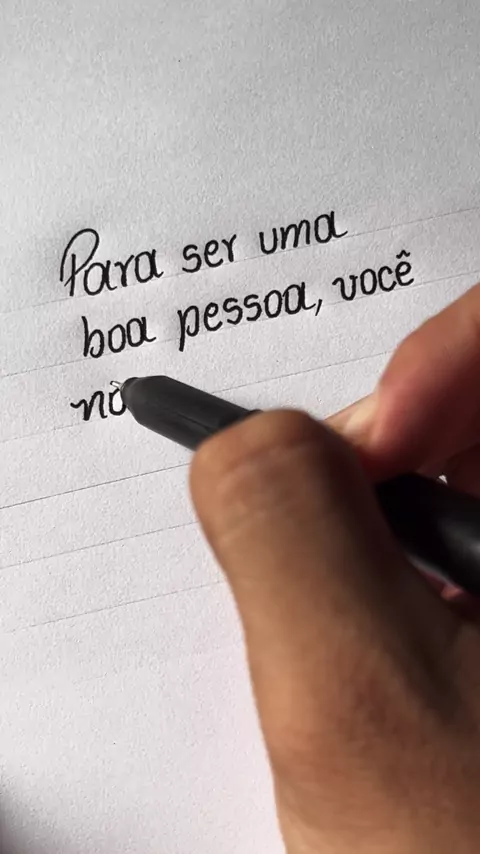 Para ser uma
boa pessoa, você
no